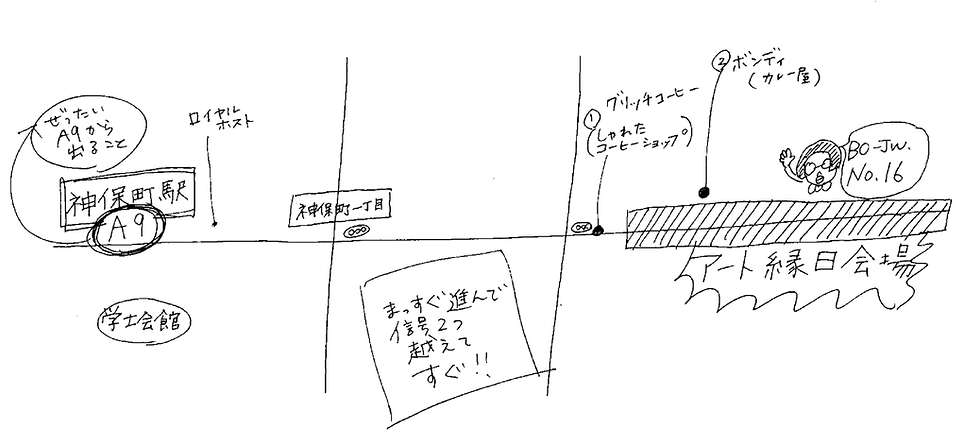 ぜったい
A9から
出ること
神保町駅
A9
ロイヤル
ホスト
学士会館
神保町一丁目
まっすぐ進んで
信号2つ
越えて
すぐ!!
グリッチコーヒー
①
(しゃれた
コーヒーショップ)
②ボンディ
(カレー屋)
BO-JW.
No.16
アート縁日会場